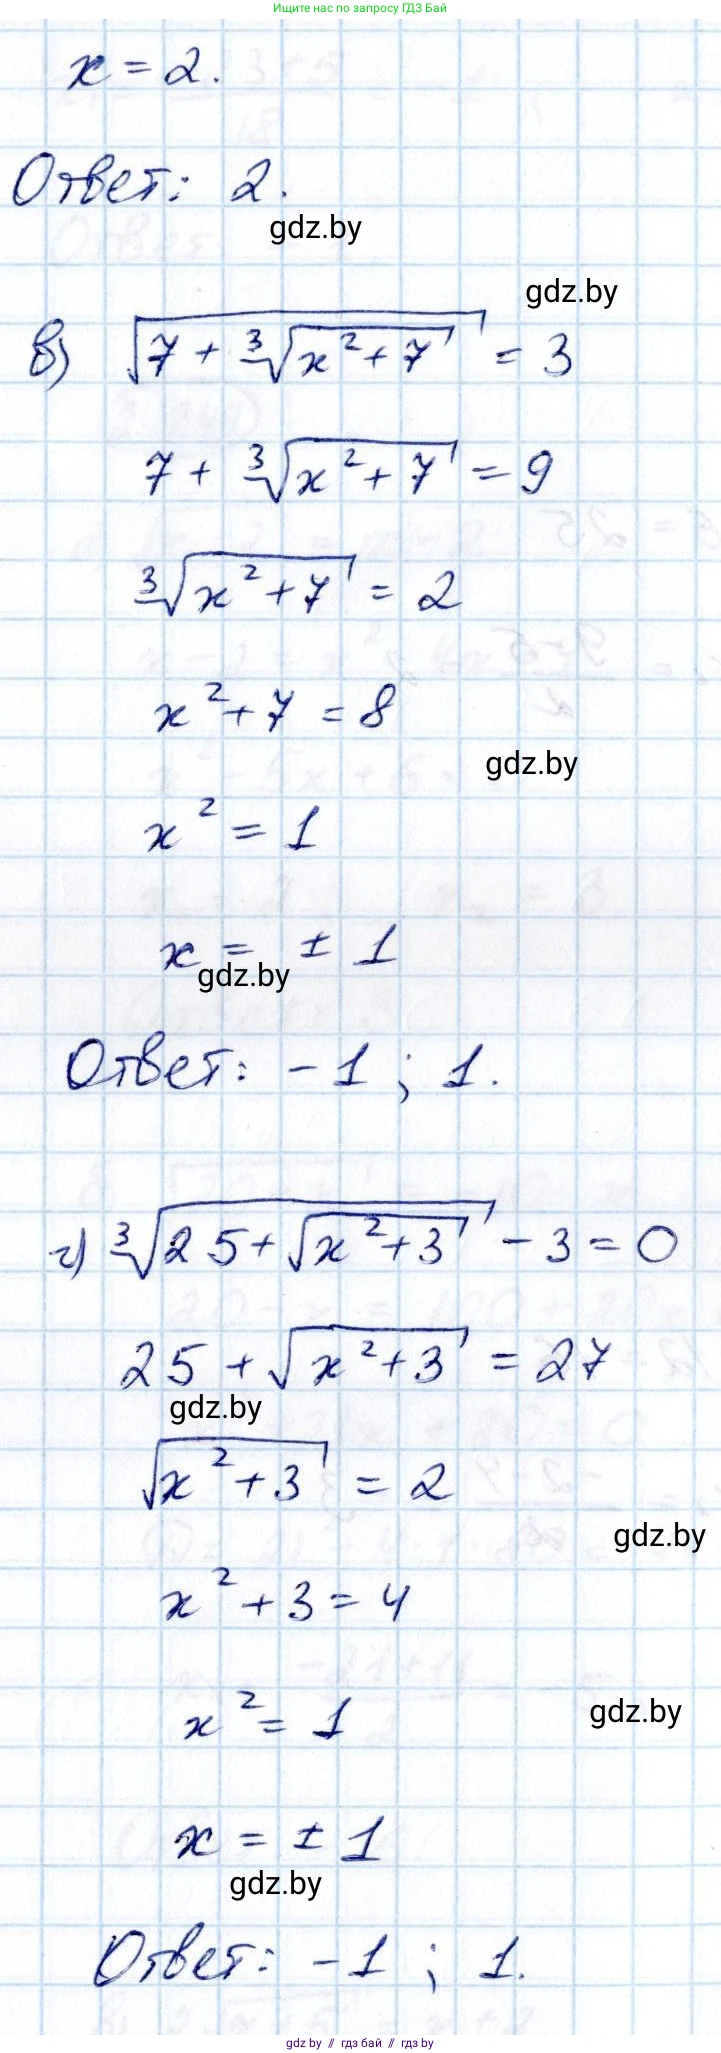 Ищите нас по запросу ГДЗ Бай
x = 2.
Ответ: 2.
gdz.by
gdz.by
в) √(7 + ∛(x² + 7)) = 3
7 + ∛(x² + 7) = 9
∛(x² + 7) = 2
x² + 7 = 8
gdz.by
x² = 1
x = ± 1
gdz.by
Ответ: -1 ; 1.
г) ∛(25 + √(x² + 3)) - 3 = 0
25 + √(x² + 3) = 27
gdz.by
√(x² + 3) = 2
gdz.by
x² + 3 = 4
x² = 1
gdz.by
x = ± 1
gdz.by
Ответ: -1 ; 1.
gdz.by // гдз бай // гдз by